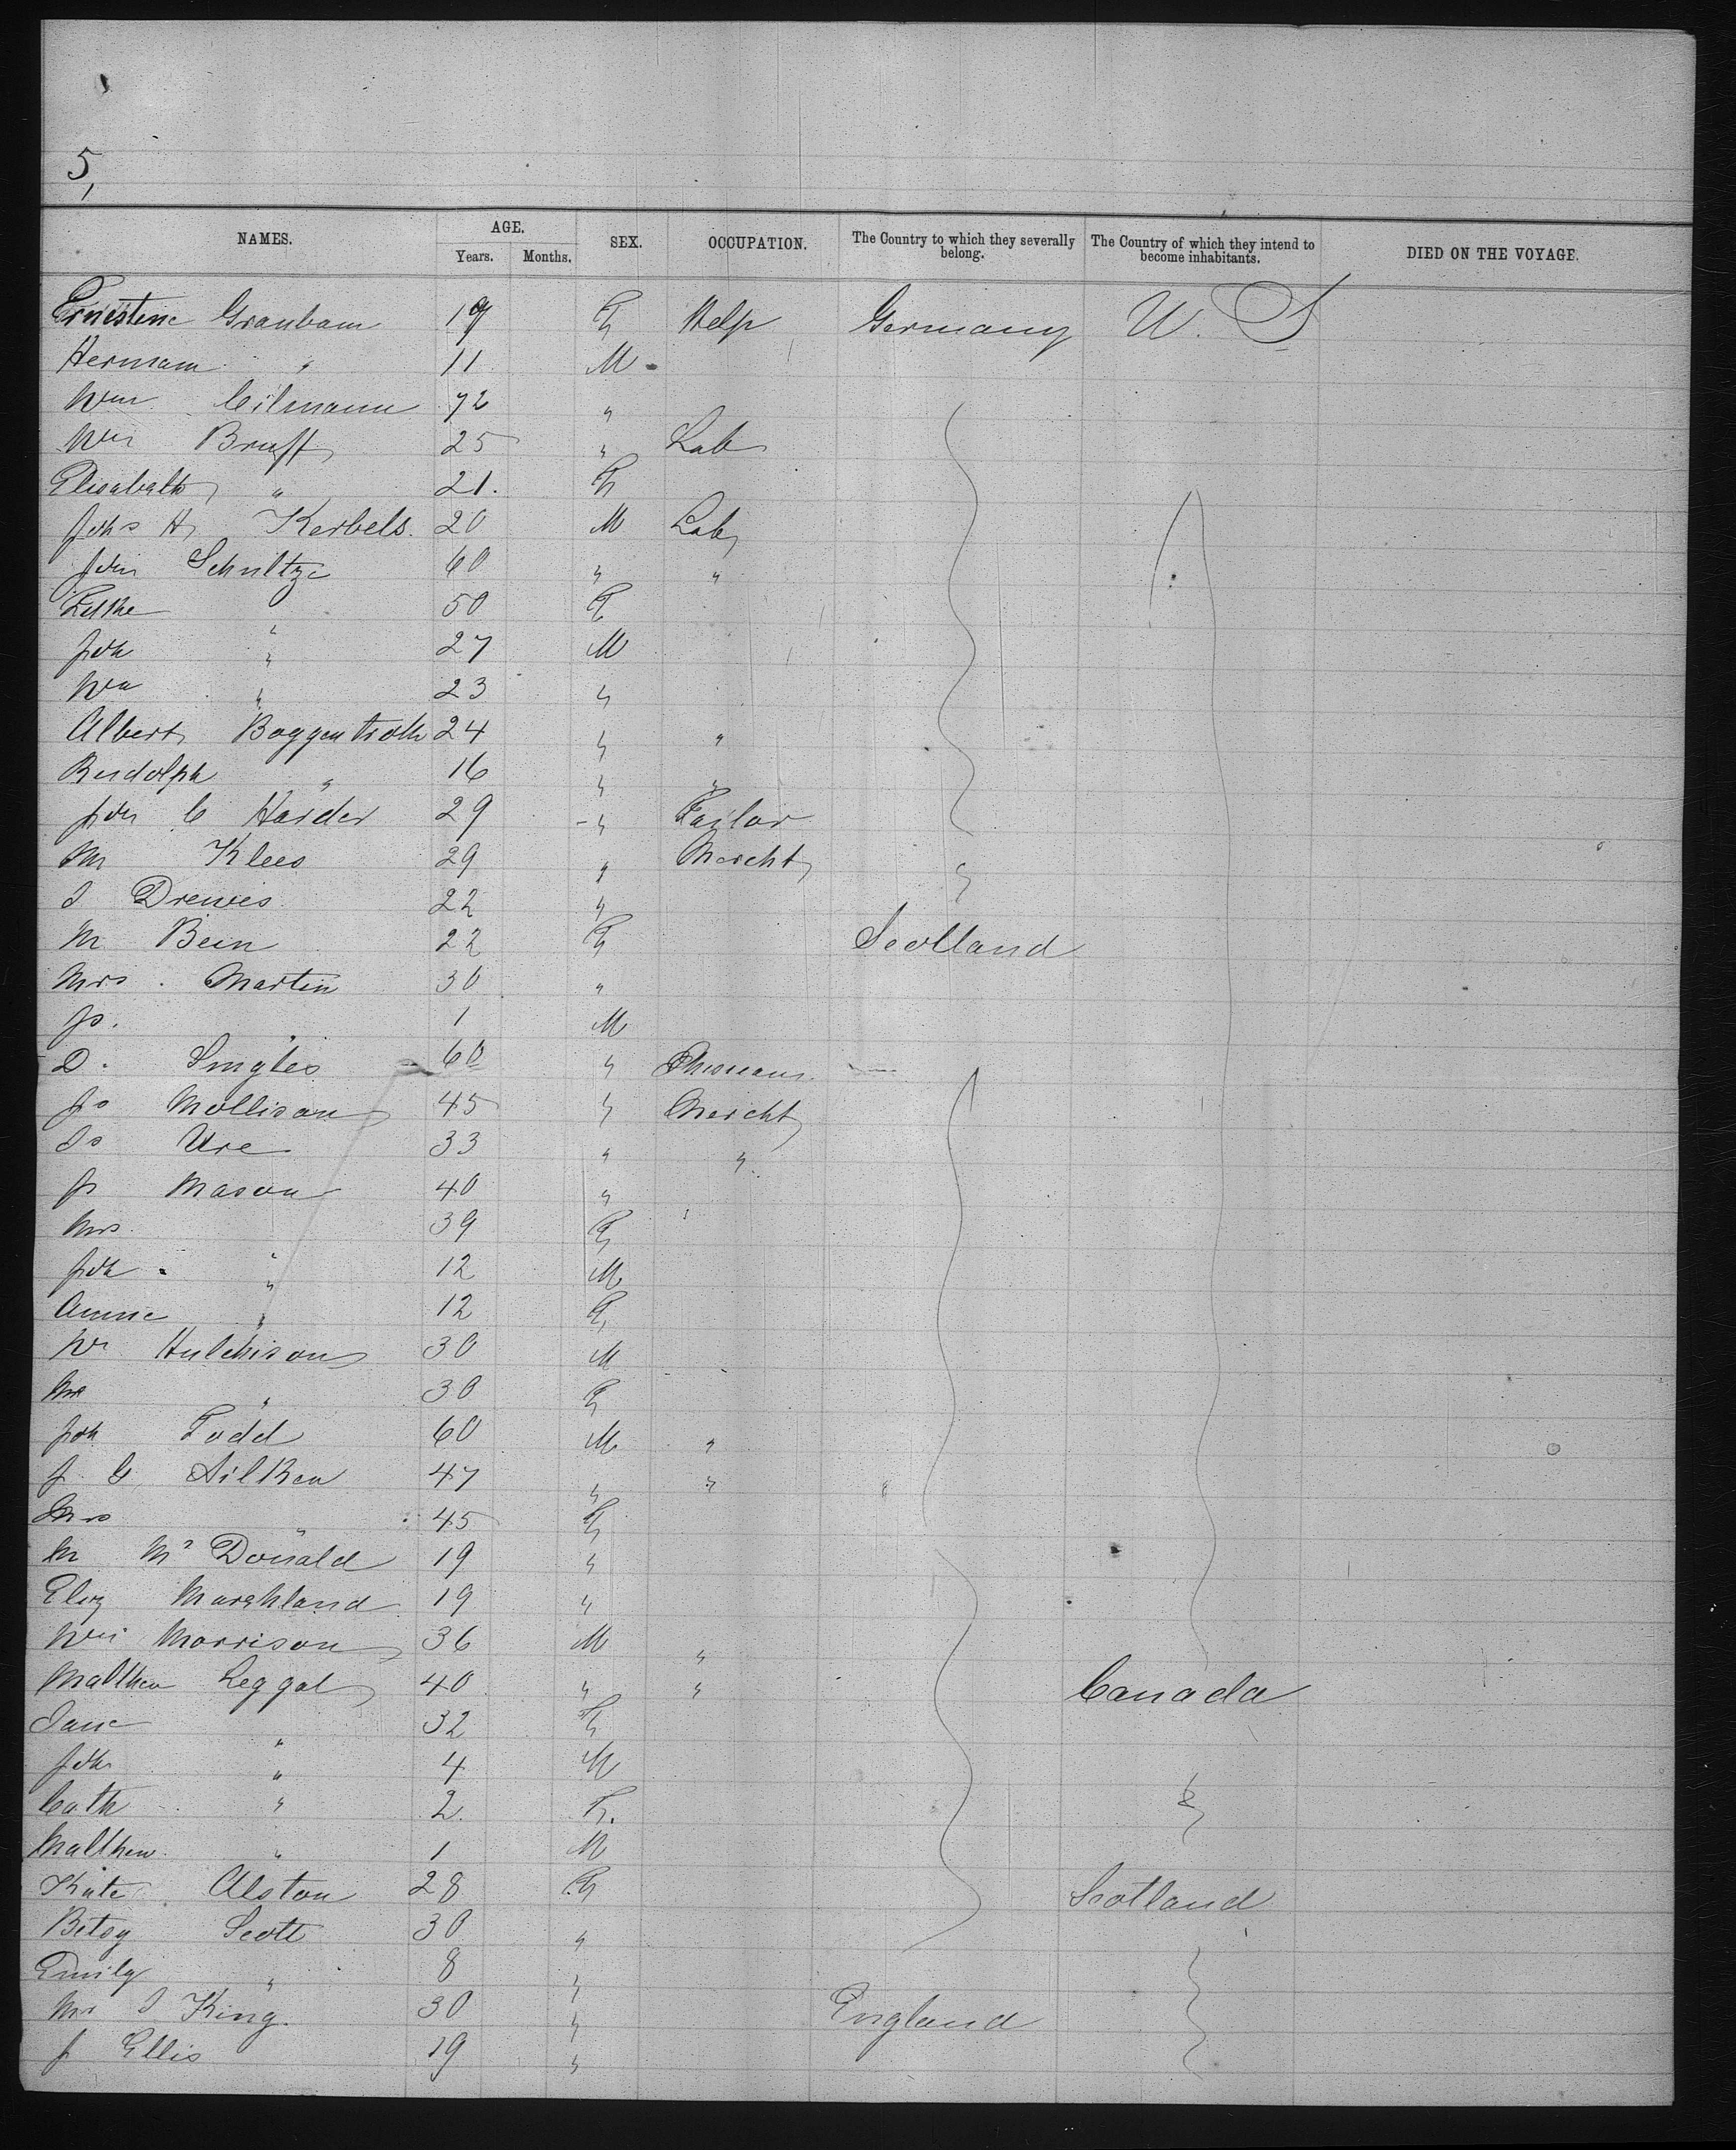 5,
NAMES. AGE. SEX. OCCUPATION. The Country to which they severally belong. The Country of which they intend to become inhabitants. DIED ON THE VOYAGE.
Years. Months.
Ernestine Graubam 19 F Help Germany U. S
Hermam " 11 M
Wm Cilmann 72 "
Wm Bruft 25 " Lab
Elisabath " 21. F
Joh H Kerbels. 20 M Lab
John Schultze 60 " "
50 F
Joh " 27 M
Wm " 23 "
Albert Boggentroth 24 " "
Rudolph " 16 " "
Joh C Harder 29 " Tailor
M Klees 29 " Mercht
J Drewes 22 "
M Bein 22 F Scotland
Mrs. Martin 30 "
Js. " 1 M
D. Singles 60 "
Js Mollison 45 " Mercht
Js Ure 33 " "
Js Mason 40 "
Mrs " 39 F
Joh " 12 M
Annie " 12 F
Wm Hutchison 30 M
Mrs " 30 F
Joh Todd 60 M "
J G Aitken 47 " "
Mrs " 45 F
M Mc Donald 19 "
Eliz Marshland 19 "
Wm Morrison 36 M "
Matthew Leggat 40 " " Canada
Jane " 32 F
Joh " 4 M
Cath " 2. F.
Matthew " 1 M
Kate Alston 28 F Scotland
Betsy Scott 30 "
Emily " 8 "
Mr J King. 30 " England
J Ellis 19 "